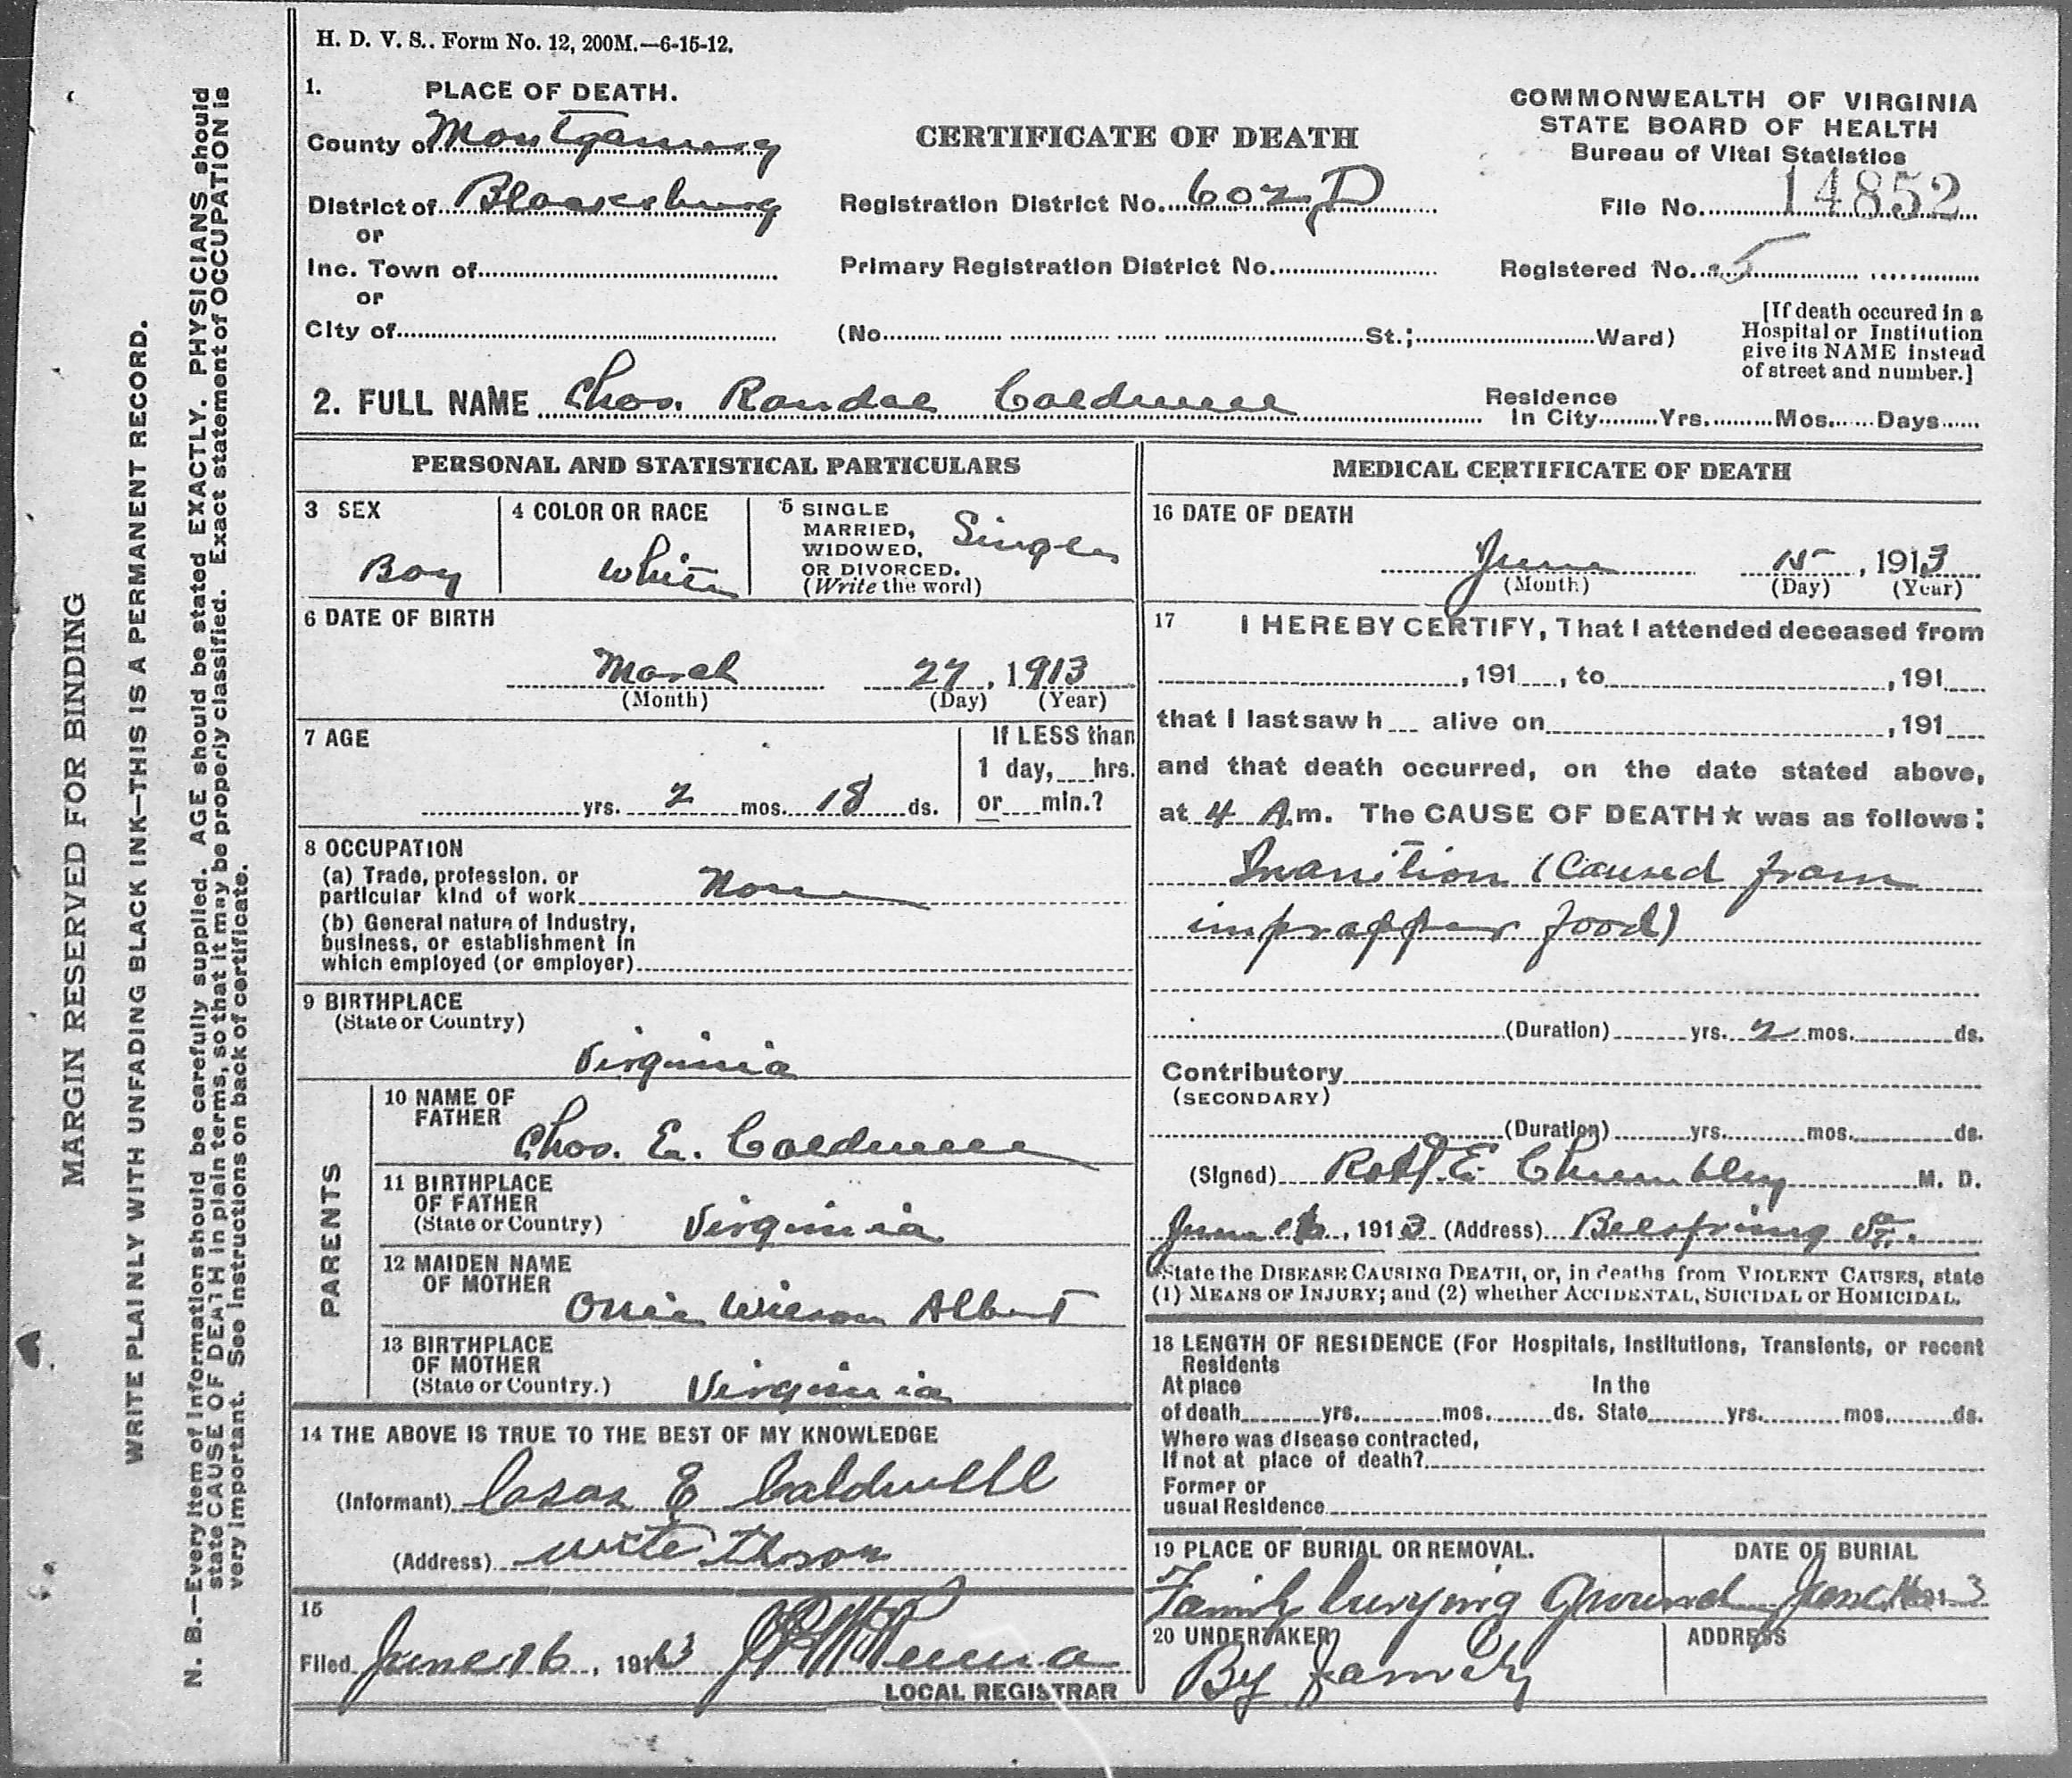 H. D. V. S.. Form No. 12, 200M.—6-15-12.
1. PLACE OF DEATH.
County of Montgomery
District of Blacksburg
or
Inc. Town of
or
City of
CERTIFICATE OF DEATH
Registration District No. 602 D
Primary Registration District No.
(No. St.; Ward)
COMMONWEALTH OF VIRGINIA
STATE BOARD OF HEALTH
Bureau of Vital Statistics
File No. 14852
Registered No. 5
[If death occured in a
Hospital or Institution
give its NAME instead
of street and number.]
2. FULL NAME Chas. Randal Caldwell
Residence
In City Yrs. Mos. Days
PERSONAL AND STATISTICAL PARTICULARS
3 SEX
Boy
4 COLOR OR RACE
White
5 SINGLE
MARRIED,
WIDOWED,
OR DIVORCED.
(Write the word)
Single
6 DATE OF BIRTH
March 27, 1913
(Month) (Day) (Year)
7 AGE
yrs. 2 mos. 18 ds.
If LESS than
1 day, hrs.
or min.?
8 OCCUPATION
(a) Trade, profession, or
particular kind of work None
(b) General nature of Industry,
business, or establishment in
which employed (or employer)
9 BIRTHPLACE
(State or Country)
Virginia
PARENTS
10 NAME OF
FATHER
Chas. E. Caldwell
11 BIRTHPLACE
OF FATHER
(State or Country) Virginia
12 MAIDEN NAME
OF MOTHER
Onie Wilson Albert
13 BIRTHPLACE
OF MOTHER
(State or Country.) Virginia
14 THE ABOVE IS TRUE TO THE BEST OF MY KNOWLEDGE
(Informant) E Caldwell
(Address)
15
Filed June 16, 1913
LOCAL REGISTRAR
MEDICAL CERTIFICATE OF DEATH
16 DATE OF DEATH
June 15, 1913
(Month) (Day) (Year)
17 I HEREBY CERTIFY, That I attended deceased from
, 191 , to , 191
that I last saw h alive on , 191
and that death occurred, on the date stated above,
at 4 A.m. The CAUSE OF DEATH★ was as follows:
Inanition (Caused from
impropper food)
(Duration) yrs. 2 mos. ds.
Contributory
(SECONDARY)
(Duration) yrs. mos. ds.
(Signed) Robt. E. Chumbley M. D.
June 16, 1913 (Address) Belspring Va.
State the DISEASE CAUSING DEATH, or, in deaths from VIOLENT CAUSES, state
(1) MEANS OF INJURY; and (2) whether ACCIDENTAL, SUICIDAL or HOMICIDAL.
18 LENGTH OF RESIDENCE (For Hospitals, Institutions, Transients, or recent
Residents
At place In the
of death yrs. mos. ds. State yrs. mos. ds.
Where was disease contracted,
If not at place of death?
Former or
usual Residence
19 PLACE OF BURIAL OR REMOVAL.
Family burying Ground
DATE OF BURIAL
June 3
20 UNDERTAKER
By family
ADDRESS
MARGIN RESERVED FOR BINDING
WRITE PLAINLY WITH UNFADING BLACK INK—THIS IS A PERMANENT RECORD.
N. B.—Every item of information should be carefully supplied. AGE should be stated EXACTLY. PHYSICIANS should
state CAUSE OF DEATH in plain terms, so that it may be properly classified. Exact statement of OCCUPATION is
very important. See instructions on back of certificate.